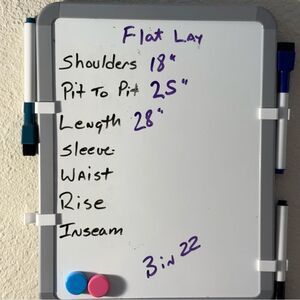 Flat Lay
Shoulders 18"
Pit To Pit 25"
Length 28"
Sleeve:
Waist
Rise
Inseam
3 in 22